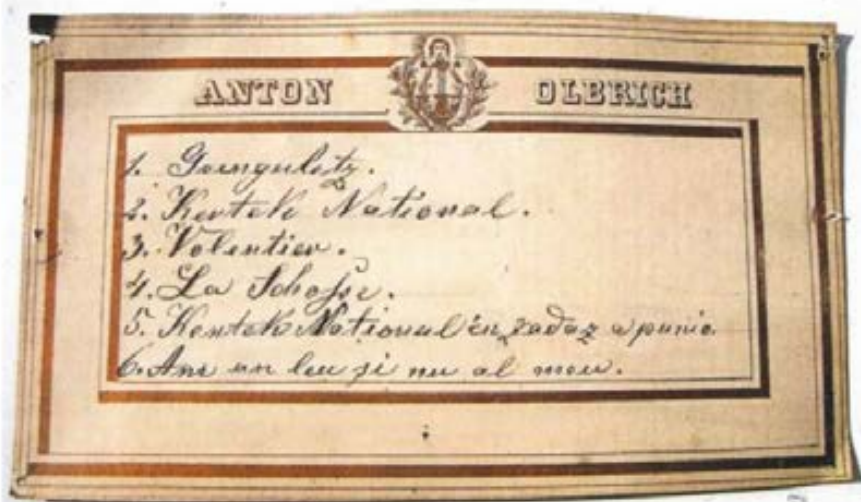 ANTON OLBRICH
1. Gounguletz.
2. Kentek National.
3. Volentier.
4. La Schosse.
5. Kentek National en zadaz apunie
6. Am un leu si nu al meu.